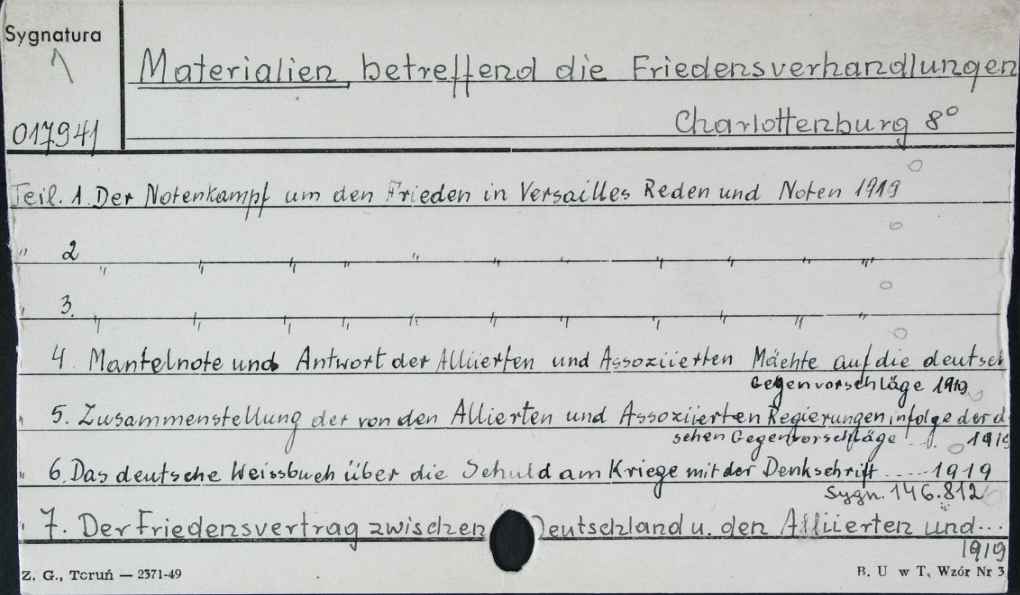 Sygnatura
Materialien, betreffend die Friedensverhandlungen
017941
Charlottenburg 8°
Teil. 1. Der Notenkampf um den Frieden in Versailles Reden und Noten 1919
" 2 " " " " " " " " " " "
" 3. " " " " " " " " " "
4. Mantelnote und Antwort der Alliierten und Assoziierten Mächte auf die deutsch
Gegenvorschläge 1919
" 5. Zusammenstellung der von den Allierten und Assoziierten Regierungen infolge der d
schen Gegenvorschläge 1919
" 6. Das deutsche Weissbuch über die Schuld am Kriege mit der Denkschrift ..... 1919
Sygn. 146.812
" 7. Der Friedensvertrag zwischen Deutschland u. den Alliierten und...
1919
Z. G., Toruń — 2371-49
B. U w T, Wzór Nr 3